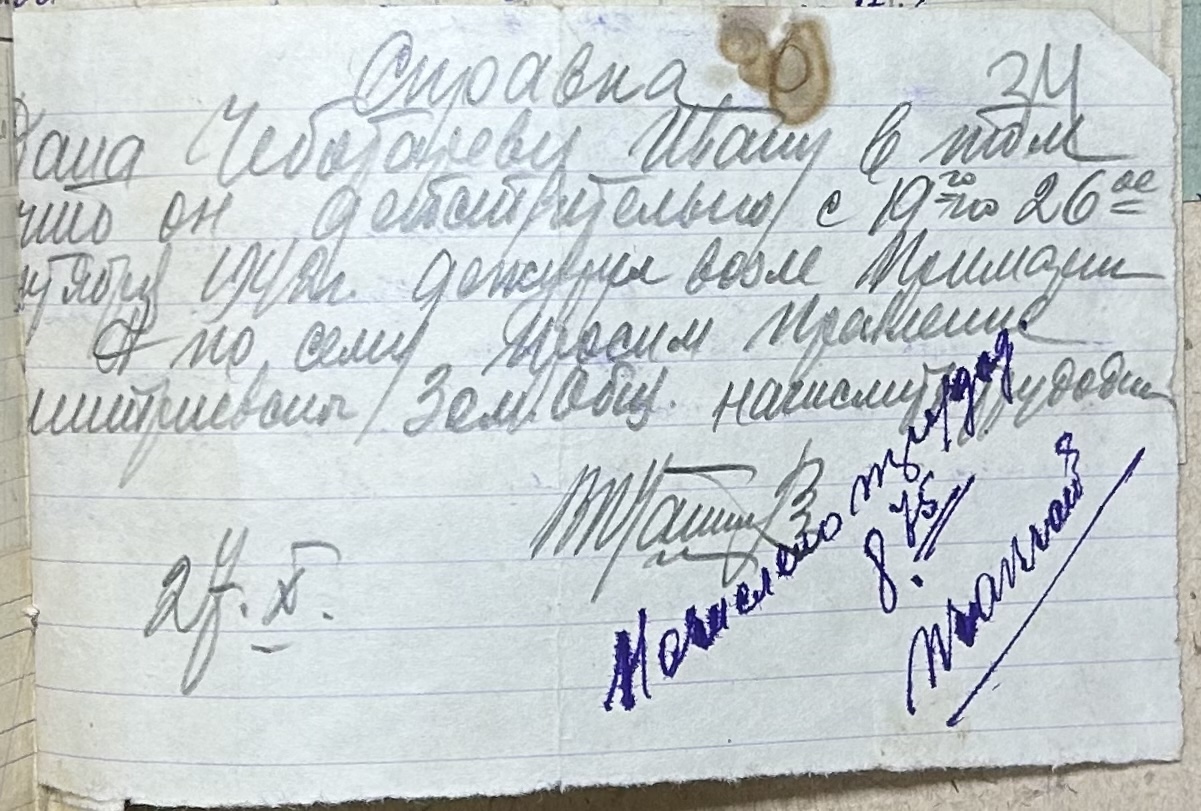 Справка 34
Дана Чеботареву Ивану в том
что он действительно с 19го по 26ое
октября 1942г. дежурил возле
А по сему просим правление
Зем. Общ. начислить трудодни
27. X.
Начислено труддод.
8.75